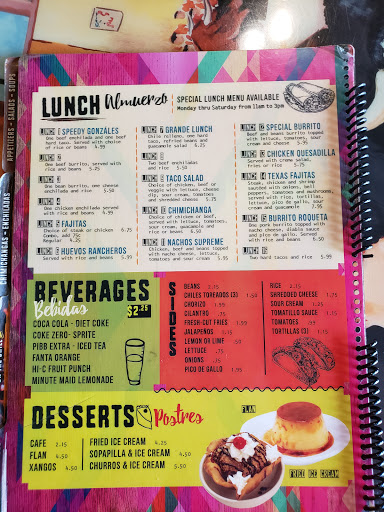 APPETIZERS - SALADS - SOUPS
CHIMICHANGAS - ENCHILADAS
LUNCH Almuerzo
SPECIAL LUNCH MENU AVAILABLE
Monday thru Saturday from 11am to 3pm
LUNCH 1 SPEEDY GONZALES
One beef enchilada and one beef
hard taco. Served with choice
of rice or beans 4.99
LUNCH 2
One beef burrito, served with
rice and beans 5.25
LUNCH 3
One bean burrito, one cheese
enchilada and rice 5.50
LUNCH 4
One chicken enchilada served
with rice and beans 4.99
FAJITAS
Choice of steak or chicken
Combo, add 75c
Regular 6.25
HUEVOS RANCHEROS
Served with rice and beans 5.99
LUNCH 7 GRANDE LUNCH
Chile relleno, one hard
taco, refried beans and
guacamole salad 6.25
LUNCH
Two beef enchiladas
and rice 5.50
LUNCH TACO SALAD
Choice of chicken, beef or
veggie with lettuce, cheese
dip, sour cream, tomatoes,
shredded cheese 5.75
LUNCH CHIMICHANGA
Choice of chicken or beef,
served with lettuce, tomatoes,
sour cream, guacamole and
rice or beans 6.95
LUNCH NACHOS SUPREME
Chicken, beef and beans topped
with nacho cheese, lettuce,
tomatoes and sour cream
LUNCH SPECIAL BURRITO
Beef and beans burrito topped
with lettuce, tomatoes, sour
cream and nacho cheese
LUNCH CHICKEN QUESADILLA
Served with creme salad,
fries or rice 5.75
LUNCH TEXAS FAJITAS
Steak, chicken and shrimp
sauteed with onions, bell
peppers, tomatoes and mushrooms,
served with rice, tortillas,
lettuce, pico de gallo, sour
cream and guacamole
LUNCH BURRITO ROQUETA
One pork burrito topped with
nacho cheese, diablo sauce
and pico de gallo. Served with
rice
LUNCH
Two hard tacos and rice 5.99
BEVERAGES
Bebidas
$2.25
COCA COLA - DIET COKE
COKE ZERO- SPRITE
PIBB EXTRA - ICED TEA
FANTA ORANGE
HI-C FRUIT PUNCH
MINUTE MAID LEMONADE
SIDES
BEANS 2.15
CHILES TOREADOS (3) 1.50
CHORIZO 1.99
CILANTRO .75
FRESH-CUT FRIES 1.99
JALAPENOS
LEMON OR LIME .50
LETTUCE .75
ONIONS .75
PICO DE GALLO 1.75
RICE 2.15
SHREDDED CHEESE 1.75
SOUR CREAM 1.25
TOMATILLO SAUCE 1.75
TOMATOES .99
TORTILLAS (3) 1.75
DESSERTS Postres
CAFE 2.15
FLAN 4.50
XANGOS 4.50
FRIED ICE CREAM 4.25
SOPAPILLA & ICE CREAM 4.50
CHURROS & ICE CREAM 5.50
FLAN
FRIED ICE CREAM